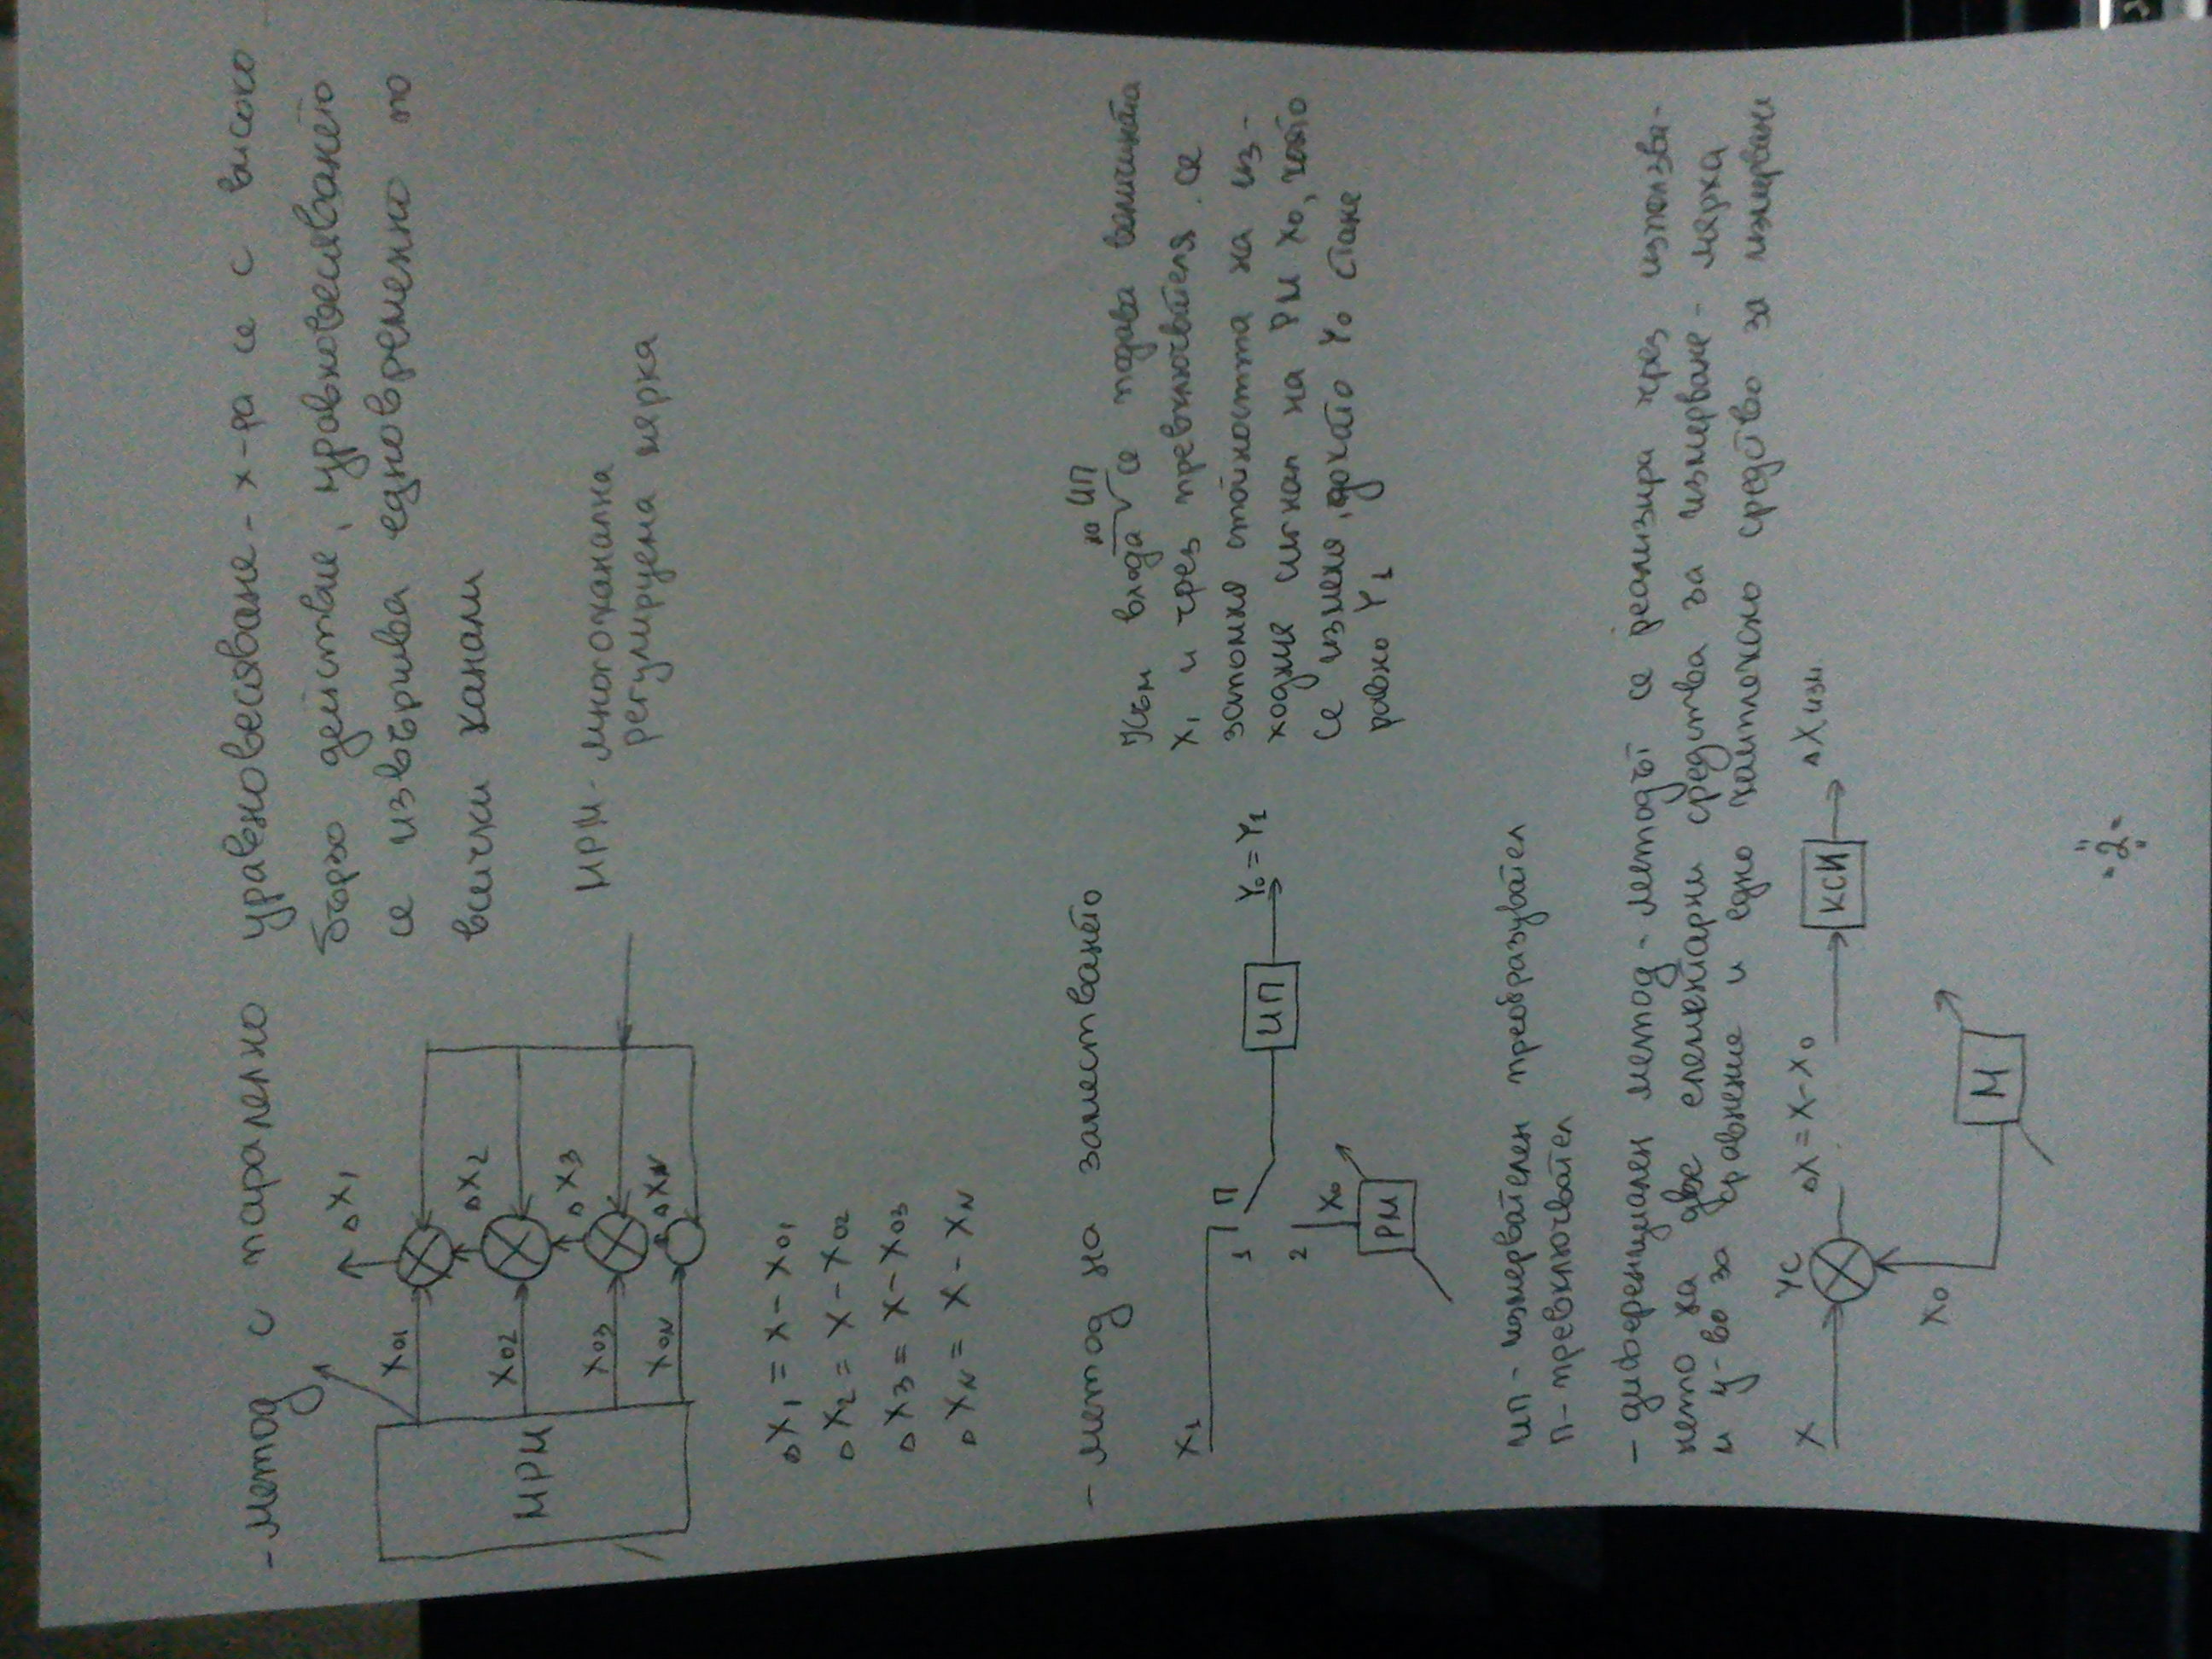 - метод с паралелно уравновесяване - х-ра се с високо
бързо действие, уравновесяването
се извършва едновременно по
всички канали
ΔX1
X01
ΔX2
X02
ΔX3
X03
ΔXN
X0N
МРМ
МРМ - многоканална
регулируема мярка
ΔX1 = X - X01
ΔX2 = X - X02
ΔX3 = X - X03
ΔXN = X - XN
- метод на заместването
X1
1
П
2
X0
РМ
ИП
Y0 = Y1
на ИП
Към входа се подава величината
X1 и чрез превключвателя се
запомня стойността на из-
ходния сигнал на РМ X0, който
се изменя, докато Y0 стане
равно Y1
ИП - измервателен преобразувател
П - превключвател
- диференциален метод - методът се реализира чрез използва-
нето на две елементарни средства за измерване - мярка
и у-во за сравнение и едно комплексно средство за измерване
X
УС
ΔX = X - X0
КСИ
ΔX изм
X0
М
"2"